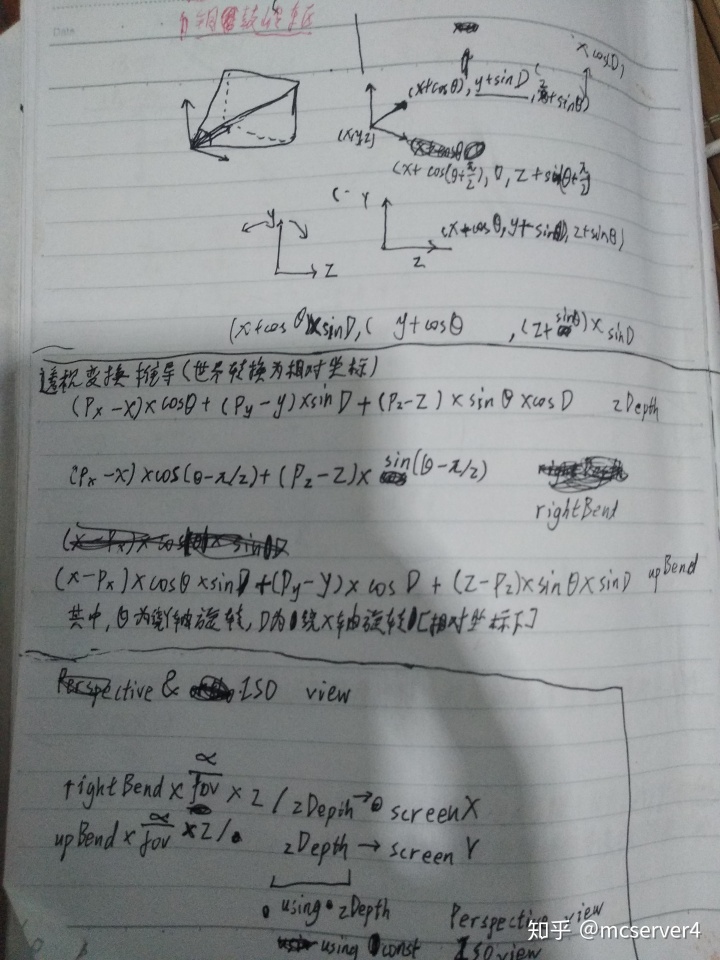 Date
x cos(D)
(x+cosθ), y+sinD, z+sinθ)
(x,y,z)
(x+cos(θ+π/2), 0, z+sin(θ+π/2)
(- Y
y
(x+cosθ, y+sinD, z+sinθ)
Z
Z
(x+cosθ)×sinD, ( y+cosθ , (z+sinθ)×sinD
透视变换推导(世界转换为相对坐标)
(Px-x)×cosθ+(Py-y)×sinD+(Pz-z)×sinθ×cosD zDepth
(Px-x)×cos(θ-π/2)+(Pz-z)×sin(θ-π/2)
rightBend
(x-Px)×cosθ×sinD+(Py-y)×cosD+(z-Pz)×sinθ×sinD upBend
其中,θ为绕Y轴旋转,D为绕X轴旋转[相对坐标下]
Perspective & ISO view
rightBend×α/fov×2/zDepth→screenX
upBend×α/fov×2/zDepth→screenY
using zDepth Perspective view
using const ISO view
知乎 @mcserver4